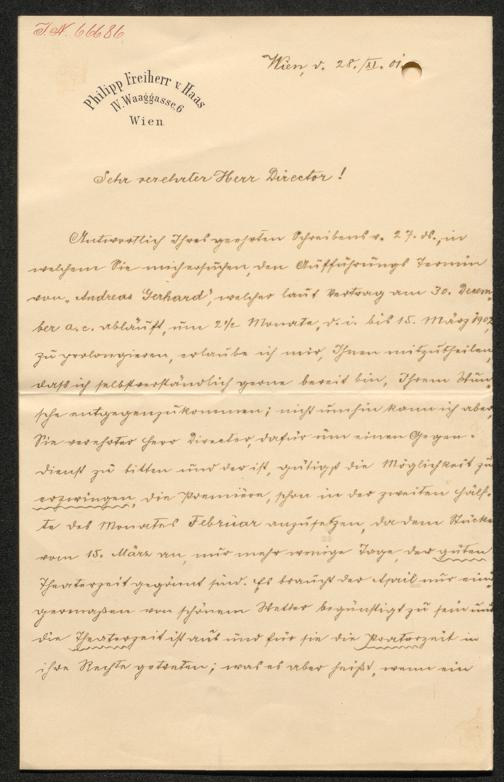 J.N. 66686
Wien, d. 28./XI. 01.
Philipp Freiherr v. Haas
IV. Waaggasse, 6
Wien
Sehr verehrter Herr Director!
Antwortlich Ihres geehrten Schreibens v. 27. ds., in
welchem Sie mich ersuchen, den Aufführungs Termin
von "Andreas Gerhard", welcher laut Vertrag am 30. Decem-
ber a.c. abläuft, um 2½ Monate, d.i. bis 15. März 1902
zu prolongieren, erlaube ich mir, Ihnen mitzutheilen
daß ich selbstverständlich gerne bereit bin, Ihrem Wun-
sche entgegenzukommen; nicht umhin kann ich aber
Sie verehrter Herr Director, dafür um einen Gegen-
dienst zu bitten und der ist, gütigst die Möglichkeit zu
erzwingen, die Première, schon in der zweiten Hälf-
te des Monates Februar anzusetzen, da dem Stücke
vom 15. März an, nur mehr wenige Tage, der guten
Theaterzeit gegönnt sind. Es braucht der April nur eini-
germaßen von schönem Wetter begünstigt zu sein und
die Theaterzeit ist aus und für sie die Praterzeit in
ihre Rechte getreten; was es aber heißt, wenn ein